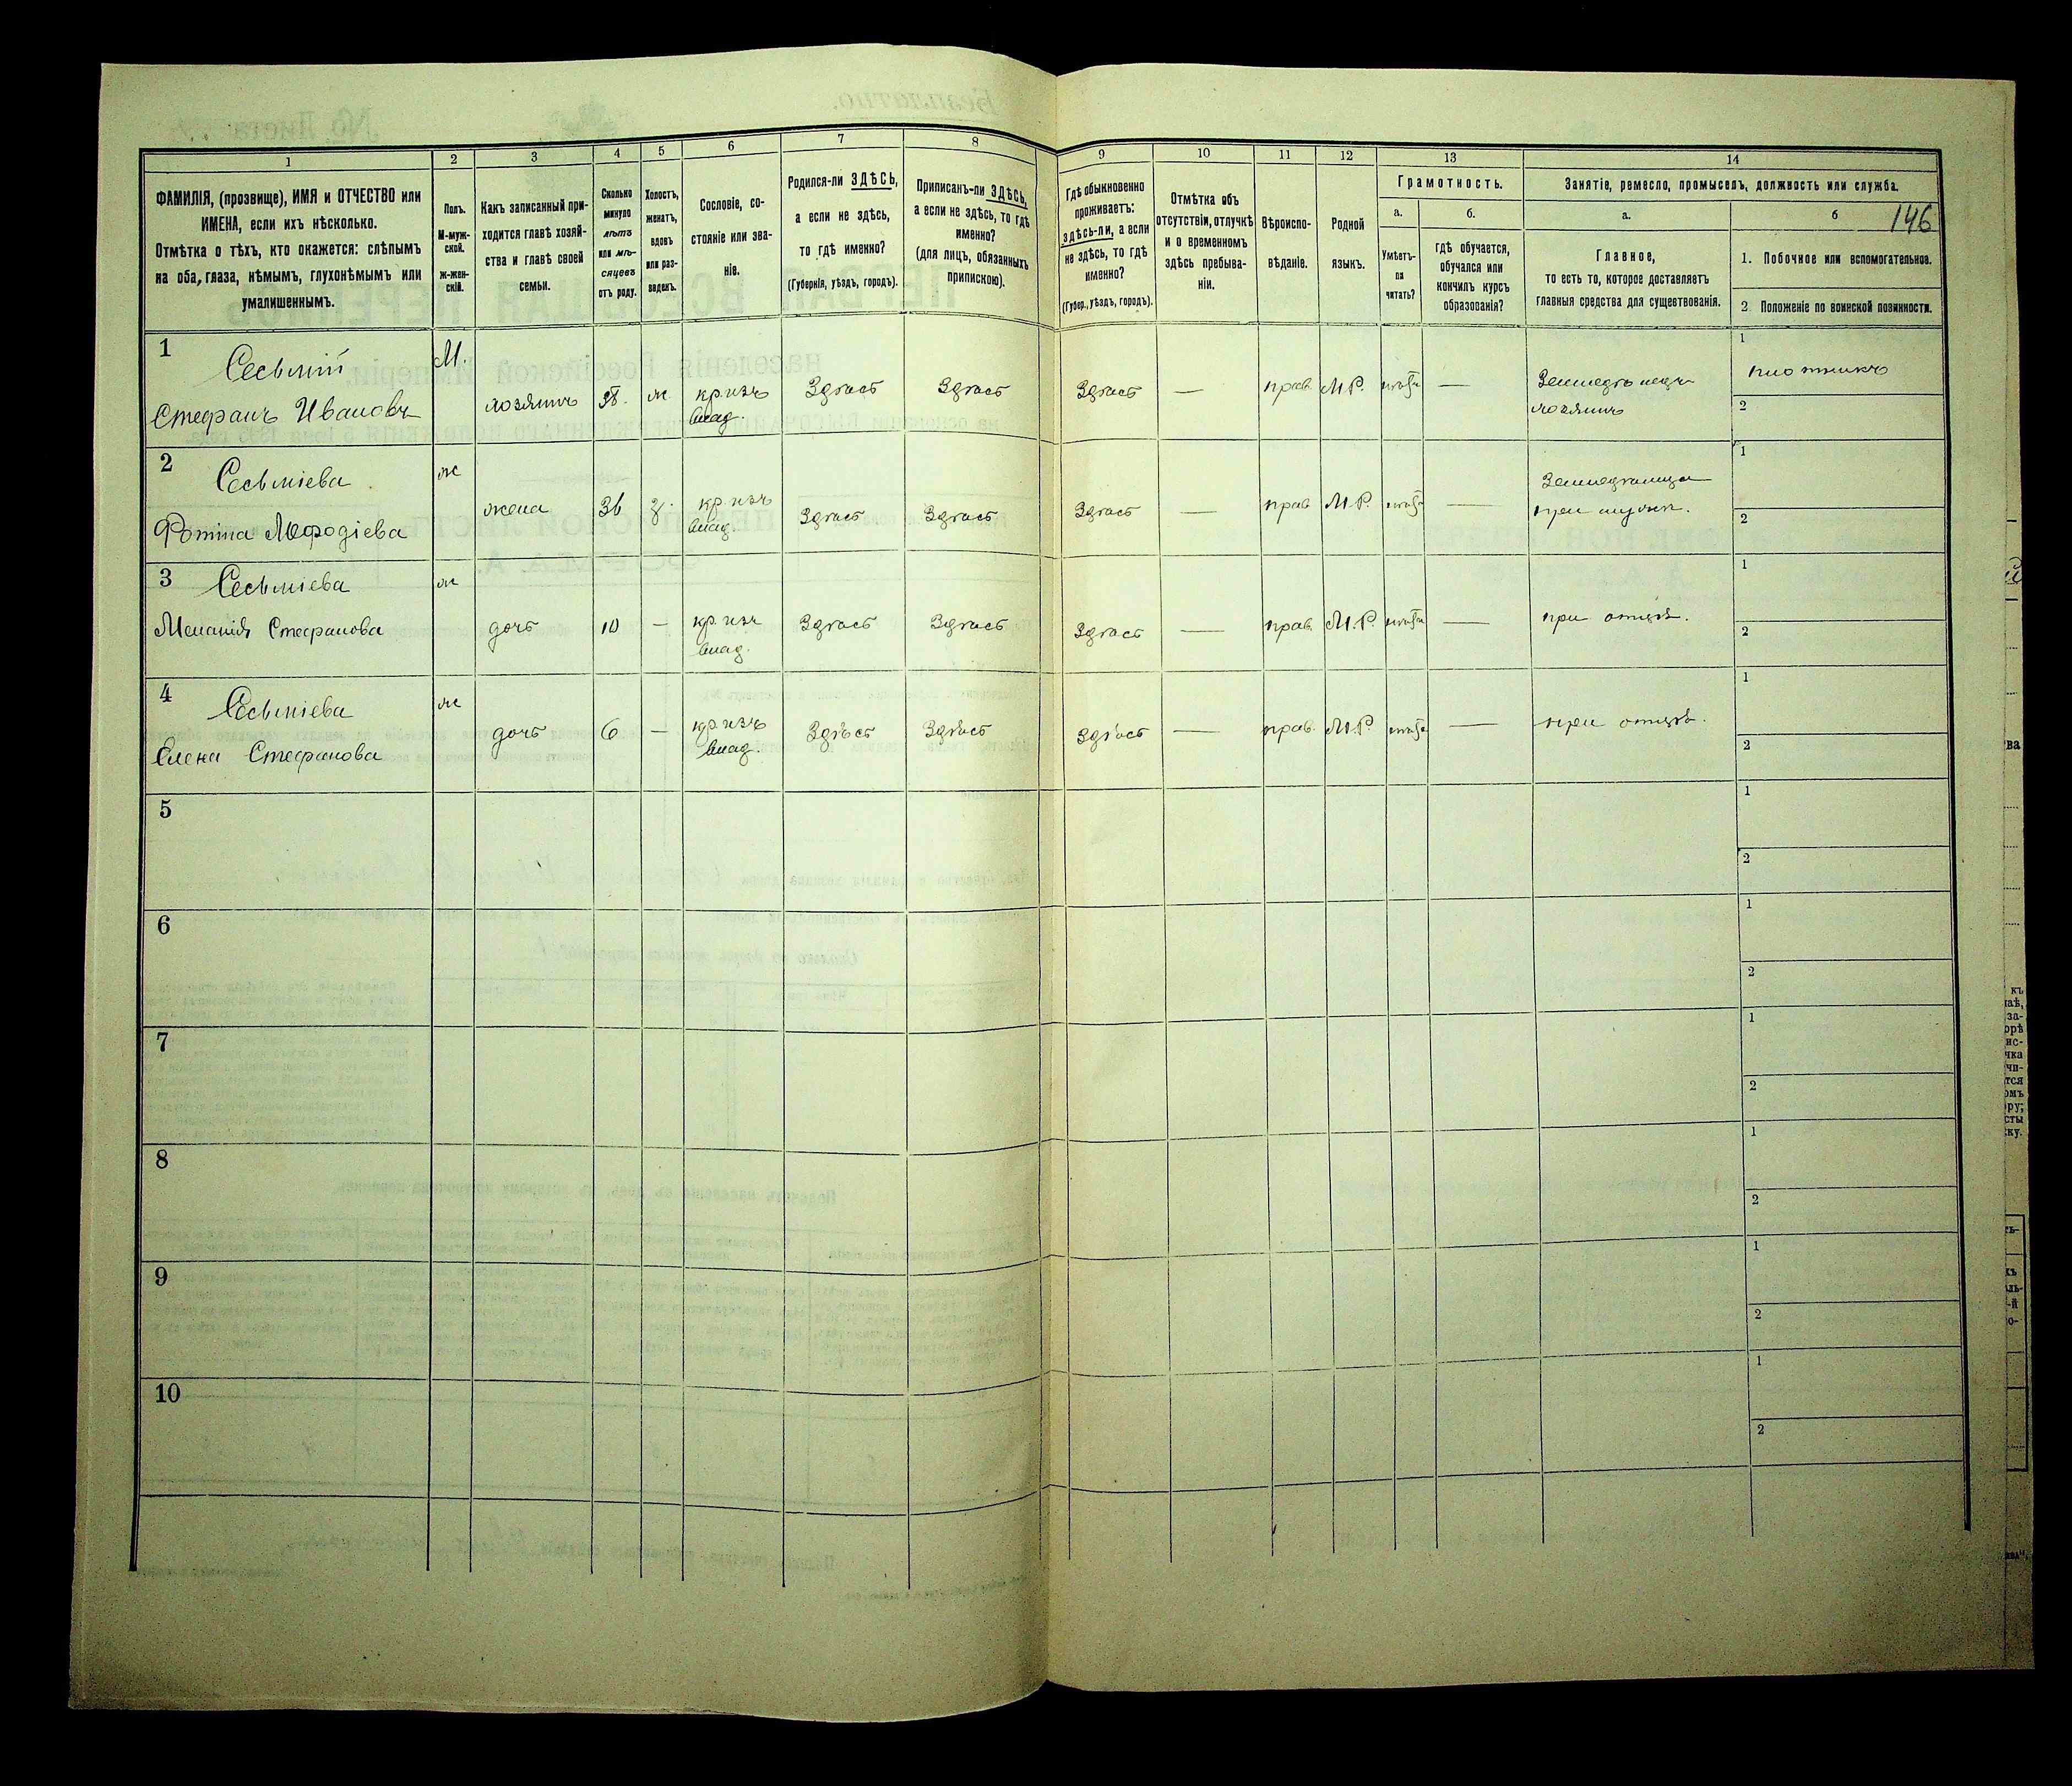 1
2
3
4
5
6
7
8
9
10
11
12
13
14
ФАМИЛІЯ, (прозвище), ИМЯ и ОТЧЕСТВО или
ИМЕНА, если ихъ нѣсколько.
Отмѣтка о тѣхъ, кто окажется: слѣпымъ
на оба, глаза, нѣмымъ, глухонѣмымъ или
умалишеннымъ.
Полъ.
М-муж-
ской.
ж-жен-
скій.
Какъ записанный при-
ходится главѣ хозяй-
ства и главѣ своей
семьи.
Сколько
минуло
лѣтъ
или мѣ-
сяцевъ
отъ роду.
Холостъ,
женатъ,
вдовъ
или раз-
веденъ.
Сословіе, со-
стояніе или зва-
ніе.
Родился-ли ЗДѢСЬ,
а если не здѣсь,
то гдѣ именно?
(Губернія, уѣздъ, городъ).
Приписанъ-ли ЗДѢСЬ,
а если не здѣсь, то гдѣ
именно?
(для лицъ, обязанныхъ
припискою).
Гдѣ обыкновенно
проживаетъ:
здѣсь-ли, а если
не здѣсь, то гдѣ
именно?
(Губер., уѣздъ, городъ).
Отмѣтка объ
отсутствіи, отлучкѣ
и о временномъ
здѣсь пребыва-
ніи.
Вѣроиспо-
вѣданіе.
Родной
языкъ.
Грамотность.
а.
Умѣетъ-
ли
читать?
б.
гдѣ обучается,
обучался или
кончилъ курсъ
образованія?
Занятіе, ремесло, промыселъ, должность или служба.
а.
Главное,
то есть то, которое доставляетъ
главныя средства для существованія.
б
146
1. Побочное или вспомогательное.
2. Положеніе по воинской повинности.
1
Стефанъ Ивановъ
М.
хозяинъ
ж.
кр. изъ
влад.
Здѣсь
Здѣсь
Здѣсь
—
прав.
М.Р.
—
Земледѣлецъ
хозяинъ
1
плотникъ
2
2
Фотина Мефодіева
ж
жена
36
з.
кр. изъ
влад.
Здѣсь
Здѣсь
Здѣсь
—
прав
М.Р.
—
при мужѣ.
1
2
3
Меланія Стефанова
ж
дочь
10
—
кр. изъ
влад.
Здѣсь
Здѣсь
Здѣсь
—
прав.
М.Р.
—
при отцѣ.
1
2
4
Елена Стефанова
ж
дочь
6
—
кр. изъ
влад.
Здѣсь
Здѣсь
Здѣсь
—
прав.
М.Р.
—
при отцѣ.
1
2
5
1
2
6
1
2
7
1
2
8
1
2
9
1
2
10
1
2